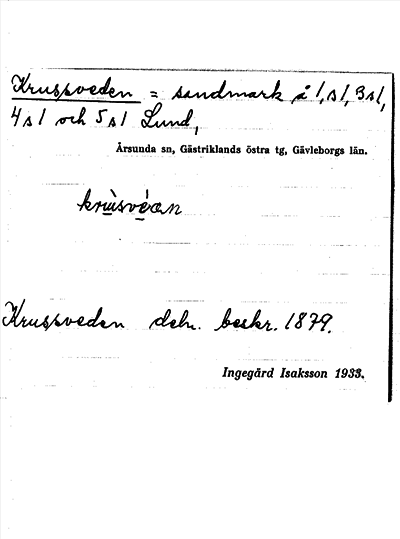 Kruspveden = sandmark å 1, s1, 3s1,
4s1 och 5s1 Lund,
Årsunda sn, Gästriklands östra tg, Gävleborgs län.
Kruspveden beskr. 1879.
Ingegärd Isaksson 1933.